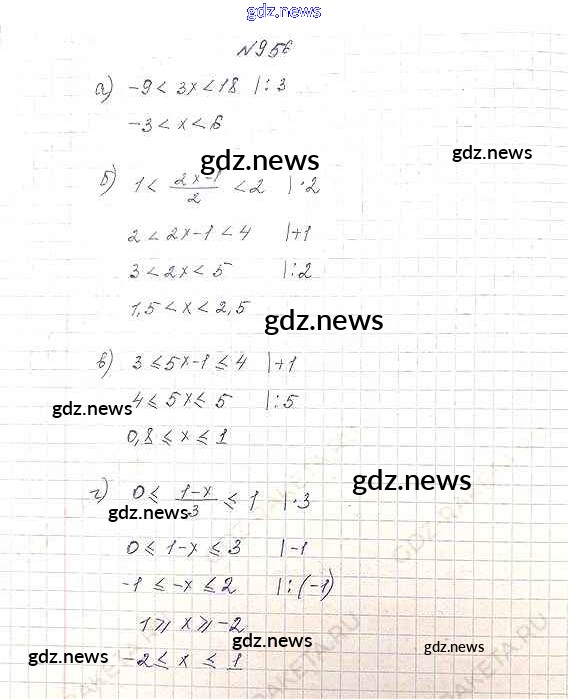 gdz.news
N956
а) -9 < 3x < 18 |:3
-3 < x < 6
gdz.news
gdz.news
б) 1 < (2x-1)/2 < 2 |·2
2 < 2x-1 < 4 |+1
3 < 2x < 5 |:2
1,5 < x < 2,5
gdz.news
в) 3 ≤ 5x-1 ≤ 4 |+1
4 ≤ 5x ≤ 5 |:5
gdz.news
0,8 ≤ x ≤ 1
gdz.news
г) 0 ≤ (1-x)/3 ≤ 1 |·3
gdz.news
0 ≤ 1-x ≤ 3 |-1
-1 ≤ -x ≤ 2 |:(-1)
1 ≥ x ≥ -2
gdz.news
gdz.news
-2 ≤ x ≤ 1
gdz.news